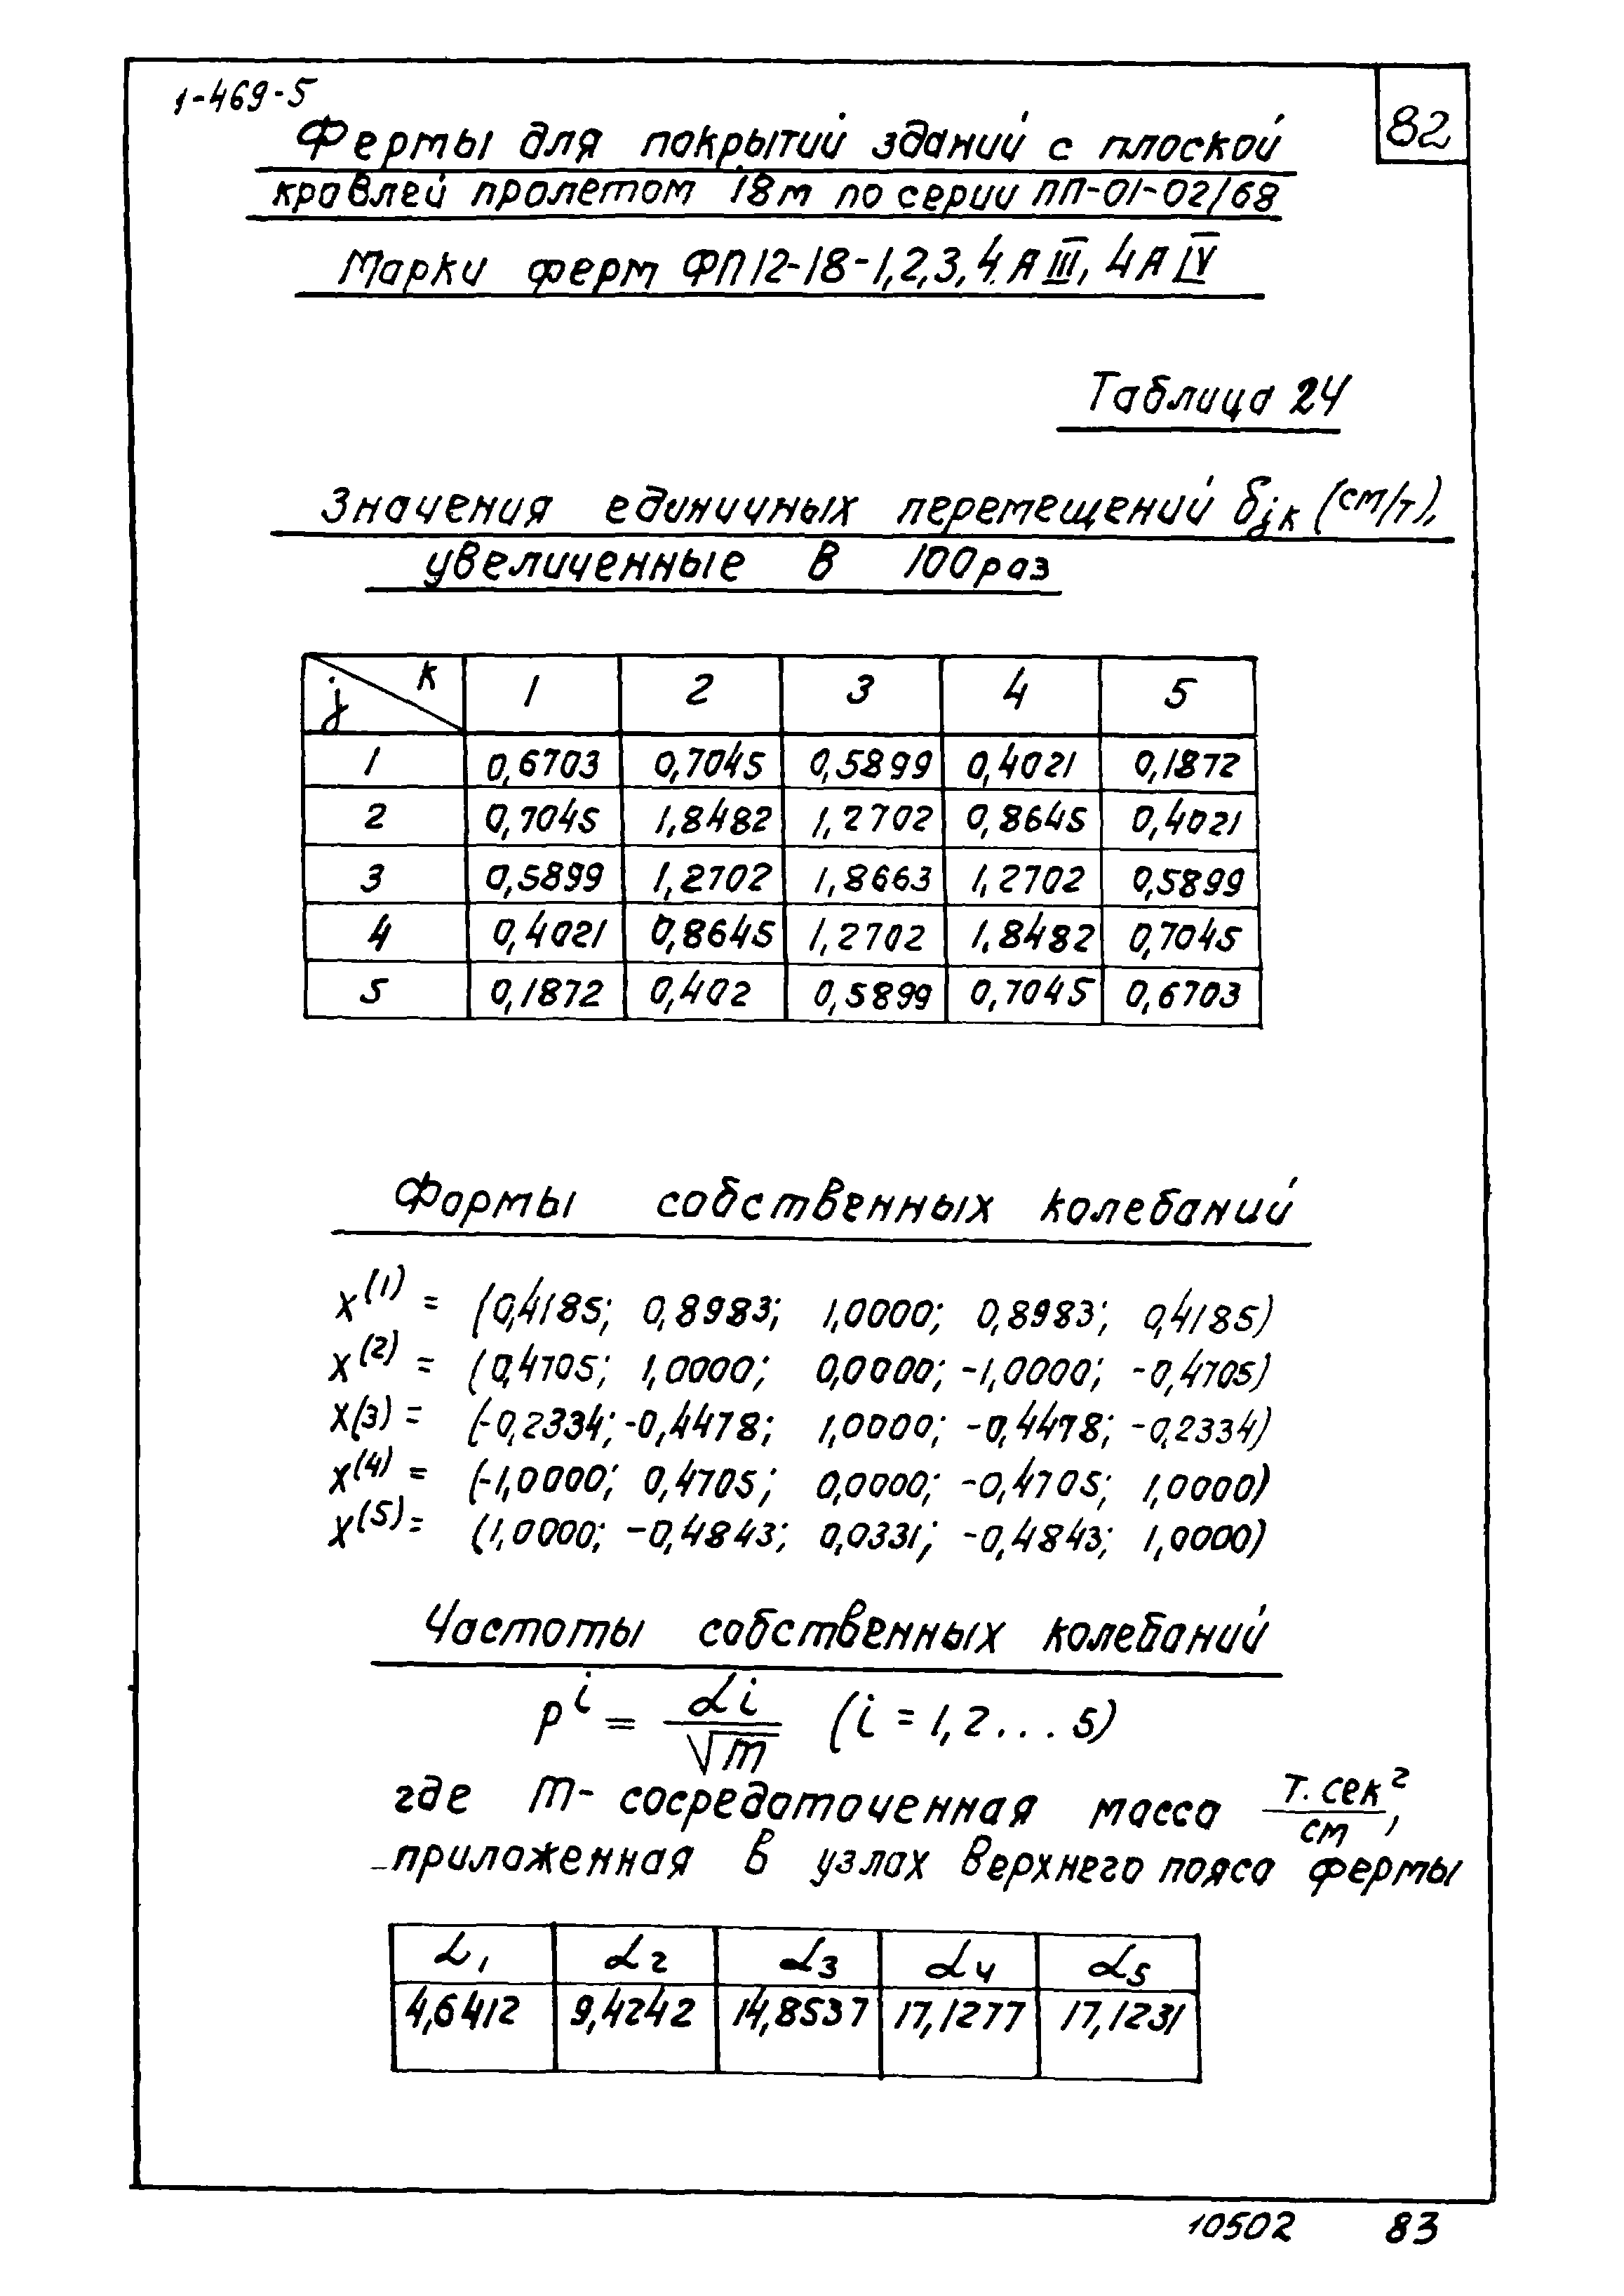 1-469-5
82
Фермы для покрытий зданий с плоской
кровлей пролетом 18м по серии ПП-01-02/68
Марки ферм ФП12-18-1,2,3,4 А III, 4 А IV
Таблица 24
Значения единичных перемещений δjк (см/т),
увеличенные в 100 раз
j к 1 2 3 4 5
1 0,6703 0,7045 0,5899 0,4021 0,1872
2 0,7045 1,8482 1,2702 0,8645 0,4021
3 0,5899 1,2702 1,8663 1,2702 0,5899
4 0,4021 0,8645 1,2702 1,8482 0,7045
5 0,1872 0,402 0,5899 0,7045 0,6703
Формы собственных колебаний
x(1) = (0,4185; 0,8983; 1,0000; 0,8983; 0,4185)
x(2) = (0,4705; 1,0000; 0,0000; -1,0000; -0,4705)
x(3) = (-0,2334; -0,4478; 1,0000; -0,4478; -0,2334)
x(4) = (-1,0000; 0,4705; 0,0000; -0,4705; 1,0000)
x(5) = (1,0000; -0,4843; 0,0331; -0,4843; 1,0000)
Частоты собственных колебаний
P^i = αi/√m (i = 1,2...5)
где m- сосредоточенная масса т.сек²/см,
приложенная в узлах верхнего пояса фермы
α1 α2 α3 α4 α5
4,6412 9,4242 14,8537 17,1277 17,1231
10502 83